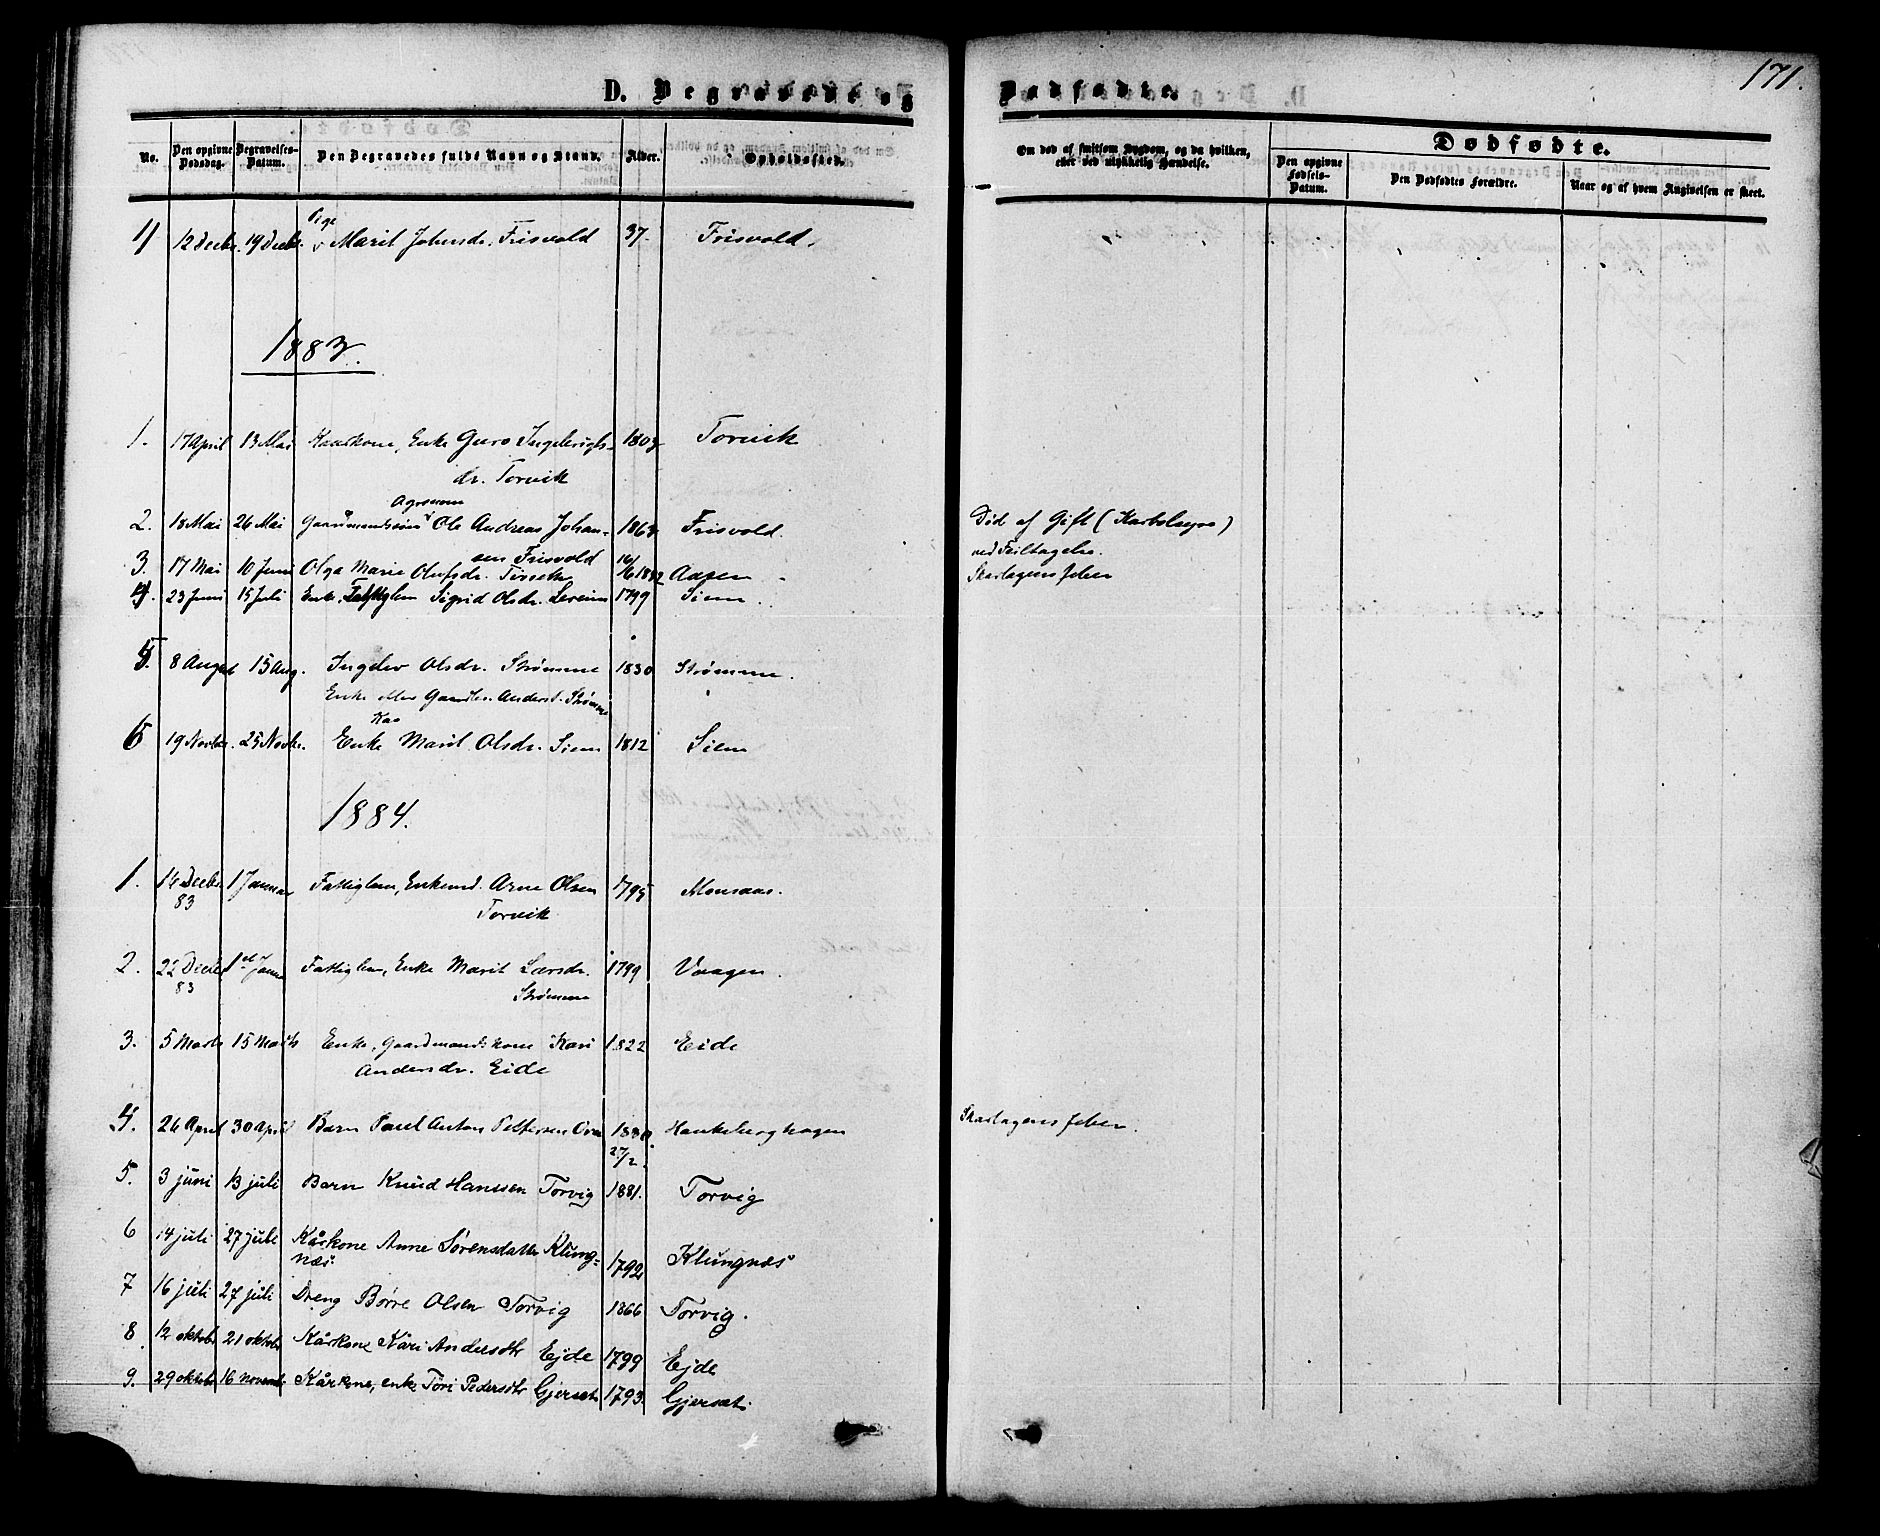 171.
D. Begravede og Dødfødte.
No. Den opgivne Dødsdag. Begravelses-Datum. Den Begravedes fulde Navn og Stand. Alder. Opholdssted. Om død af smitsom Sygdom, og da hvilken, eller ved ulykkelig Hændelse.
Dødfødte.
Den opgivne Fødsels-Datum. Den Dødfødtes Forældre. Naar og af hvem Angivelsen er skeet.
Pige
11 12 Decbr. 19 Decbr. Marit Johnsdr. Frisvold 37. Frisvold.
1883.
1. 17 April 13 Mai Kaarkone, Enke Guro Ingebrigts- 1803 Torvik
dr. Torvik
Agronom
2. 18 Mai 26 Mai Gaardmandssøn Ole Andreas Johan- 1863 Frisvold. Död af Gift (Karbolsyre)
sen Frisvold ved Feiltagelse.
3. 17 Mai 10 Juni Olga Marie Olufsdr. 1882 Aasen Skarlagensfeber
4. 23 Juni 15 Juli Enke, Sigrid Olsdr. 1799 Siem.
5. 8 August 15 Aug. Ingelev Olsdr. Strømme 1830 Strømme.
Enke efter Gaardbr. Anders Strømme
Kaa
6 19 Novbr. 25 Novbr. Enke Marit Olsdr. Siem 1812 Siem
1884.
1. 14 Decbr 1 Januar Fattiglem, Enkemd. Arne Olsen 1795 Monsaas.
83 Torvik
2. 22 Decbr 1ste Janu Fattiglem, Enke Marit Larsdr. 1799 Vaagen.
83 Strømme
3. 5 Marts 15 Marts Enke, Gaardmandskone Kari 1822 Eide
Andersdr. Eide
4. 26 April 30 April Barn Paul Anton Pettersen 1880 Haukeberghagen Skarlagensfeber.
27/2.
5. 3 juni 13 juli Barn Knud Hanssen Torvig 1881. Torvig
6 14 juli 27 juli Kårkone Anne Sørensdatter Klung- 1792 Klungnæs
næs.
7 16 juli 27 juli Dreng Børre Olsen Torvig 1866 Torvig.
8 12 oktobr 21 oktobr Kårkone Kari Andersdtr Ejde 1799 Ejde
9. 29 oktobr 16 novemb Kårkone, enke Tori Pedersdtr Gjersæt 1793. Gjersæt